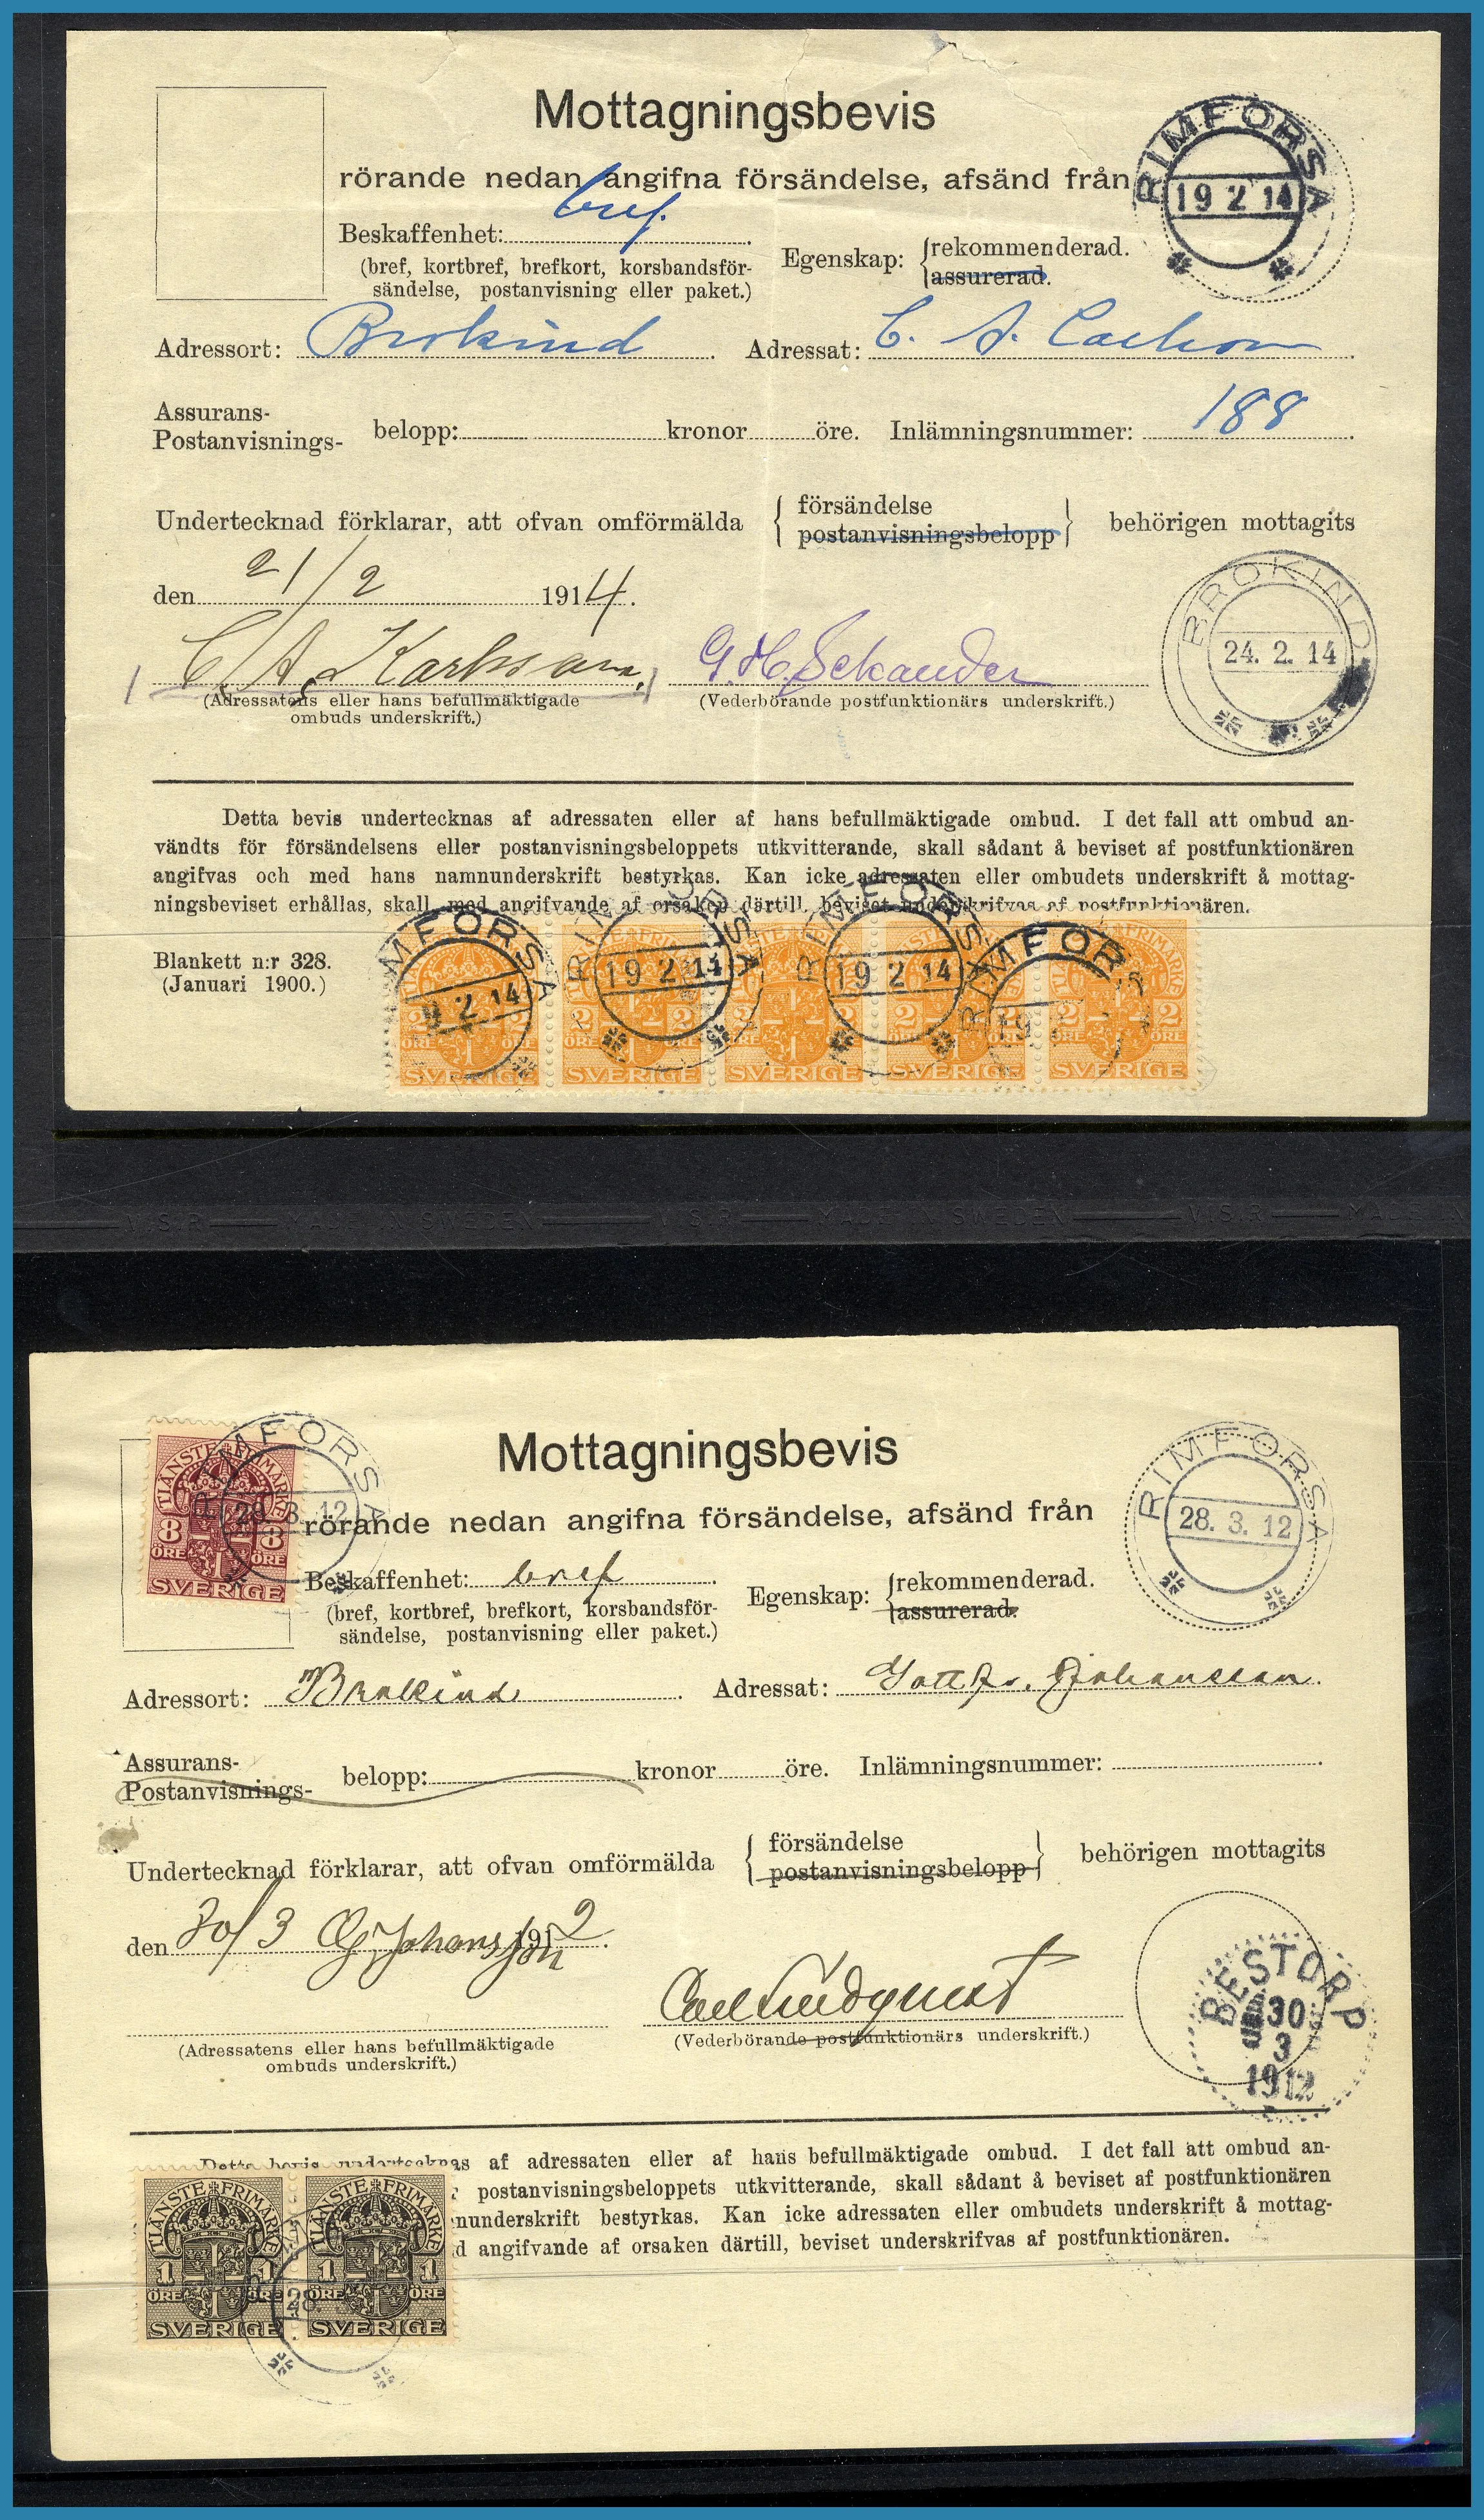 Mottagningsbevis
rörande nedan angifna försändelse, afsänd från
RIMFORSA
19 2 14
Beskaffenhet: bref.
(bref, kortbref, brefkort, korsbandsför-
sändelse, postanvisning eller paket.)
Egenskap: {rekommenderad.
assurerad.
Adressort: Brokind. Adressat: C. A. Carlson.
Assurans-
Postanvisnings- belopp: kronor öre. Inlämningsnummer: 188.
Undertecknad förklarar, att ofvan omförmälda { försändelse
postanvisningsbelopp } behörigen mottagits
den 21/2 1914.
BROKIND
24. 2. 14
C. A. Karlsson. G. H. Sekander
(Adressatens eller hans befullmäktigade
ombuds underskrift.)
(Vederbörande postfunktionärs underskrift.)
Detta bevis undertecknas af adressaten eller af hans befullmäktigade ombud. I det fall att ombud an-
vändts för försändelsens eller postanvisningsbeloppets utkvitterande, skall sådant å beviset af postfunktionären
angifvas och med hans namnunderskrift bestyrkas. Kan icke adressaten eller ombudets underskrift å mottag-
ningsbeviset erhållas, skall med angifvande af orsaken därtill, beviset underskrifvas af postfunktionären.
Blankett n:r 328.
(Januari 1900.)
RIMFORSA 19 2 14
RIMFORSA 19 2 14
2 2 ÖRE SVERIGE
2 2 ÖRE SVERIGE
2 2 ÖRE SVERIGE
2 2 ÖRE SVERIGE
2 2 ÖRE ÖRE SVERIGE
V.S.R MADE IN SWEDEN V.S.R MADE IN SWEDEN V.S.R MADE IN
TJÄNSTE FRIMÄRKE
8 8
ÖRE ÖRE
SVERIGE
RIMFORSA
28. 3. 12
Mottagningsbevis
rörande nedan angifna försändelse, afsänd från
RIMFORSA
28. 3. 12
Beskaffenhet: bref.
(bref, kortbref, brefkort, korsbandsför-
sändelse, postanvisning eller paket.)
Egenskap: {rekommenderad.
assurerad.
Adressort: Brokind. Adressat: Gottfr. Johansson.
Assurans-
Postanvisnings- belopp: kronor öre. Inlämningsnummer:
Undertecknad förklarar, att ofvan omförmälda { försändelse
postanvisningsbelopp } behörigen mottagits
den 30/3 G Johansson 1912.
BESTORP
30
3
1912
Carl Lindquist
(Adressatens eller hans befullmäktigade
ombuds underskrift.)
(Vederbörande postfunktionärs underskrift.)
Detta bevis undertecknas af adressaten eller af hans befullmäktigade ombud. I det fall att ombud an-
postanvisningsbeloppets utkvitterande, skall sådant å beviset af postfunktionären
nunderskrift bestyrkas. Kan icke adressaten eller ombudets underskrift å mottag-
d angifvande af orsaken därtill, beviset underskrifvas af postfunktionären.
TJÄNSTE FRIMÄRKE TJÄNSTE FRIMÄRKE
1 1 1 1
ÖRE ÖRE ÖRE ÖRE
SVERIGE SVERIGE
28